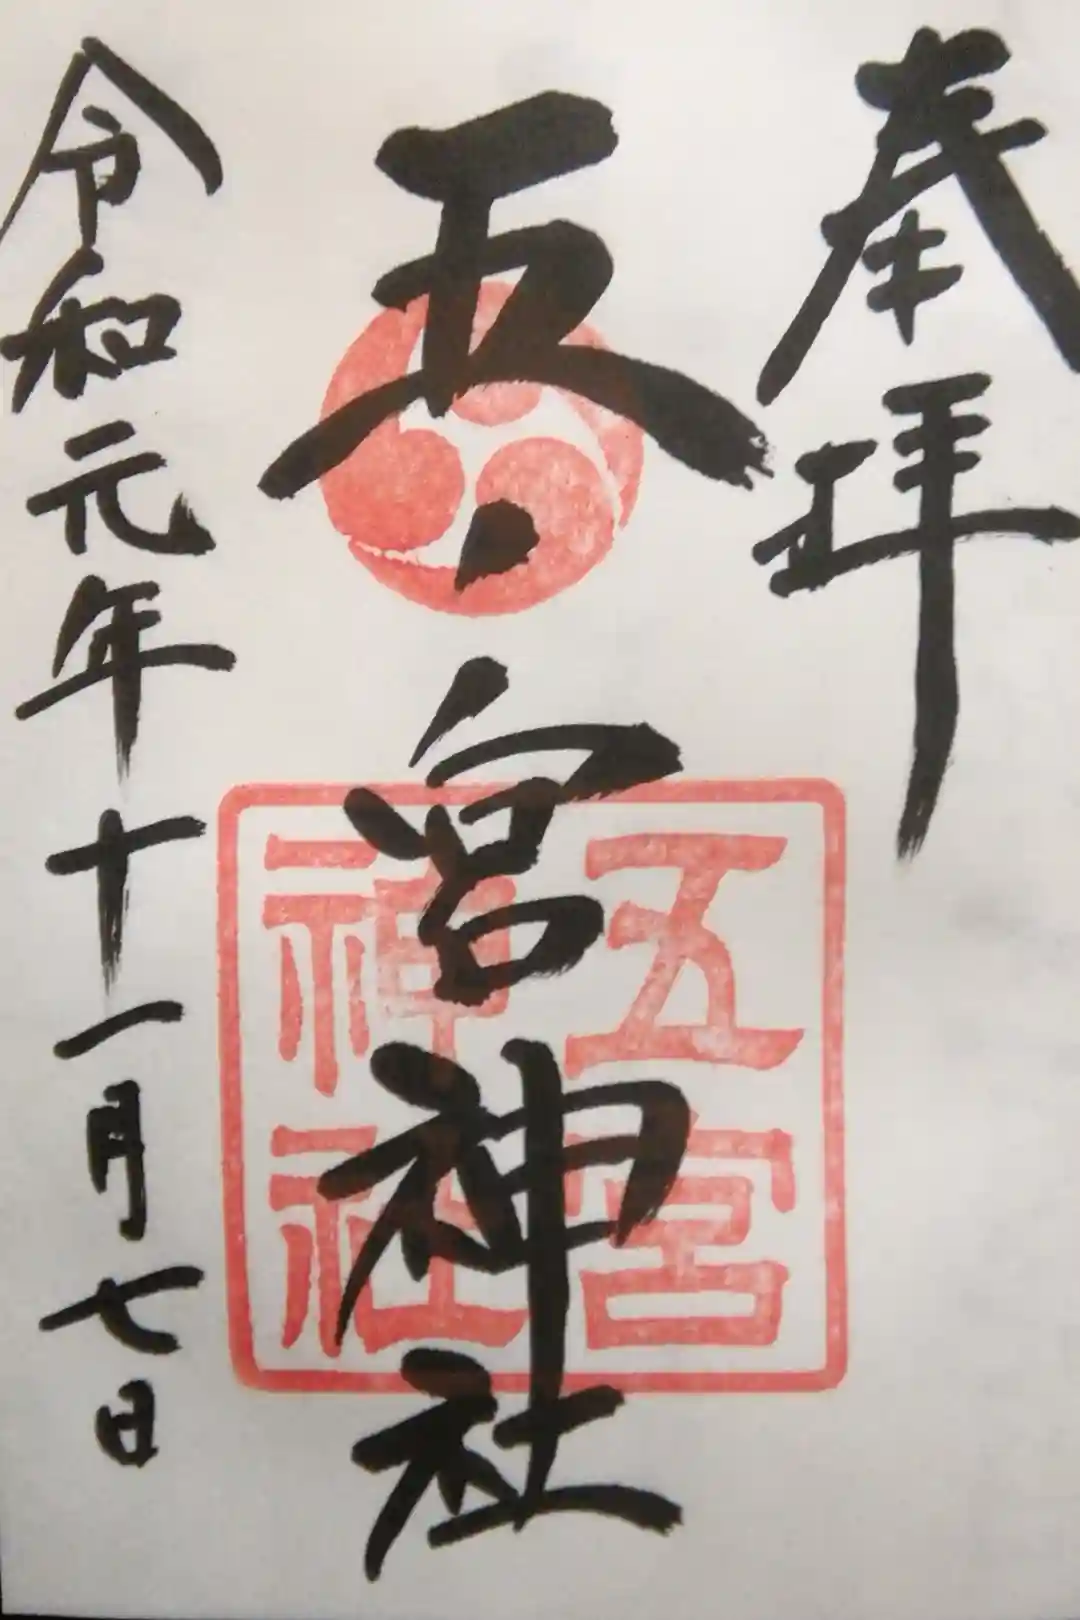 奉拝
五、宮神社
五宮
神社
令和元年十一月七日